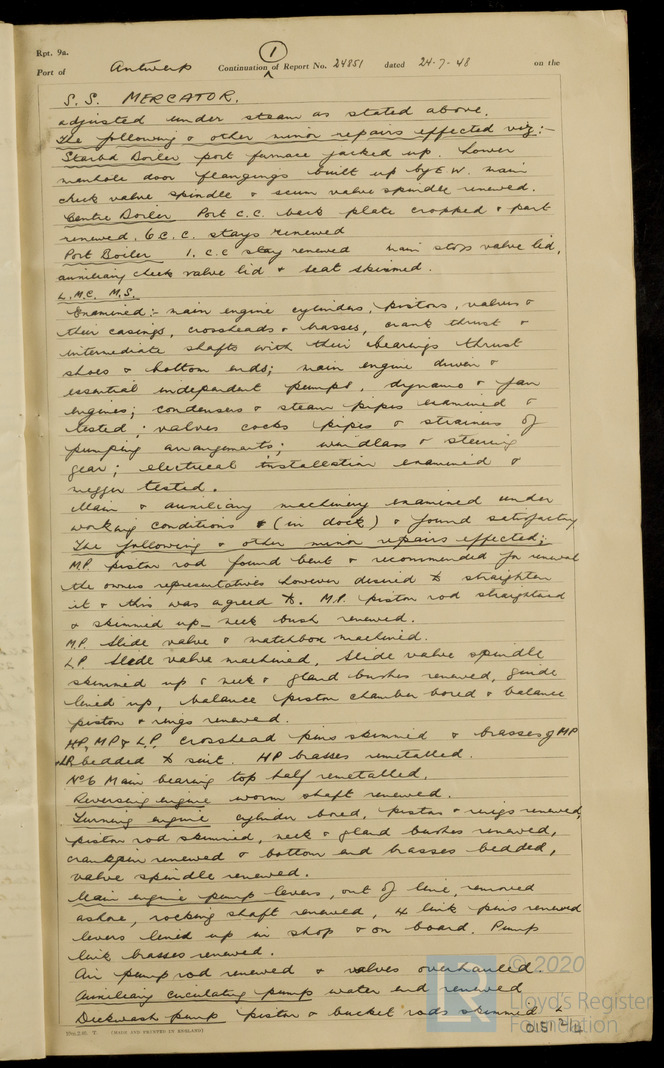 Rpt. 9a.
1
Port of Antwerp Continuation of Report No. 24851 dated 24-7-48 on the
S.S. MERCATOR.
adjusted under steam as stated above.
The following & other minor repairs effected viz:-
Starbd Boiler port furnace jacked up. Lower
manhole door flangings built up by E.W. main
check valve spindle & scum valve spindle renewed.
Centre Boiler Port C.C. back plate cropped & part
renewed. 6 C.C. stays renewed
Port Boiler 1. C.C stay renewed main stop valve lid,
auxiliary check valve lid & seat skimmed.
L.M.C. M.S.
Examined:- main engine cylinders, pistons, valves &
their casings, crossheads & brasses, crank thrust &
intermediate shafts with their bearings thrust
shoes & bottom ends; main engine driven &
essential independent pumps, dynamo & fan
engines; condensers & steam pipes examined &
tested; valves cocks pipes & strainers of
pumping arrangements; windlass & steering
gear; electrical installation examined &
megger tested.
Main & auxiliary machinery examined under
working conditions & (in dock) & found satisfactory
The following & other minor repairs effected;
M.P. piston rod found bent & recommended for renewal
the owners representatives however desired to straighten
it & this was agreed to. M.P. piston rod straightened
& skimmed up - neck bush renewed.
M.P. Slide valve & matchbox machined.
L.P. Slide valve machined, Slide valve spindle
skimmed up & neck & gland bushes renewed, guide
lined up, balance piston chamber bored & balance
piston & rings renewed.
HP, MP & L.P. crosshead pins skimmed & brasses of MP
& LP bedded to suit. HP brasses remetalled.
No 6 Main bearing top half remetalled.
Reversing engine worm shaft renewed.
Turning engine cylinder bored, piston & rings renewed,
piston rod skimmed, neck & gland bushes renewed,
crankpin renewed & bottom end brasses bedded,
valve spindle renewed.
Main engine pump levers, out of line, removed
ashore, rocking shaft renewed, 4 link pins renewed
levers lined up in shop & on board. Pump
link brasses renewed.
Air pump rod renewed & valves overhauled.
Auxiliary circulating pump water end renewed
Deckwash pump piston & bucket rods skimmed &
(MADE AND PRINTED IN ENGLAND)
© 2020
Lloyd's Register
Foundation